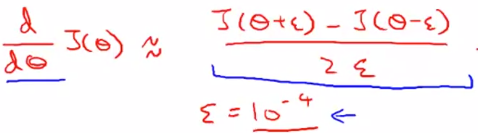 d/dθ J(θ) ≈ (J(θ+ε) - J(θ-ε)) / 2ε
ε = 10⁻⁴ ←